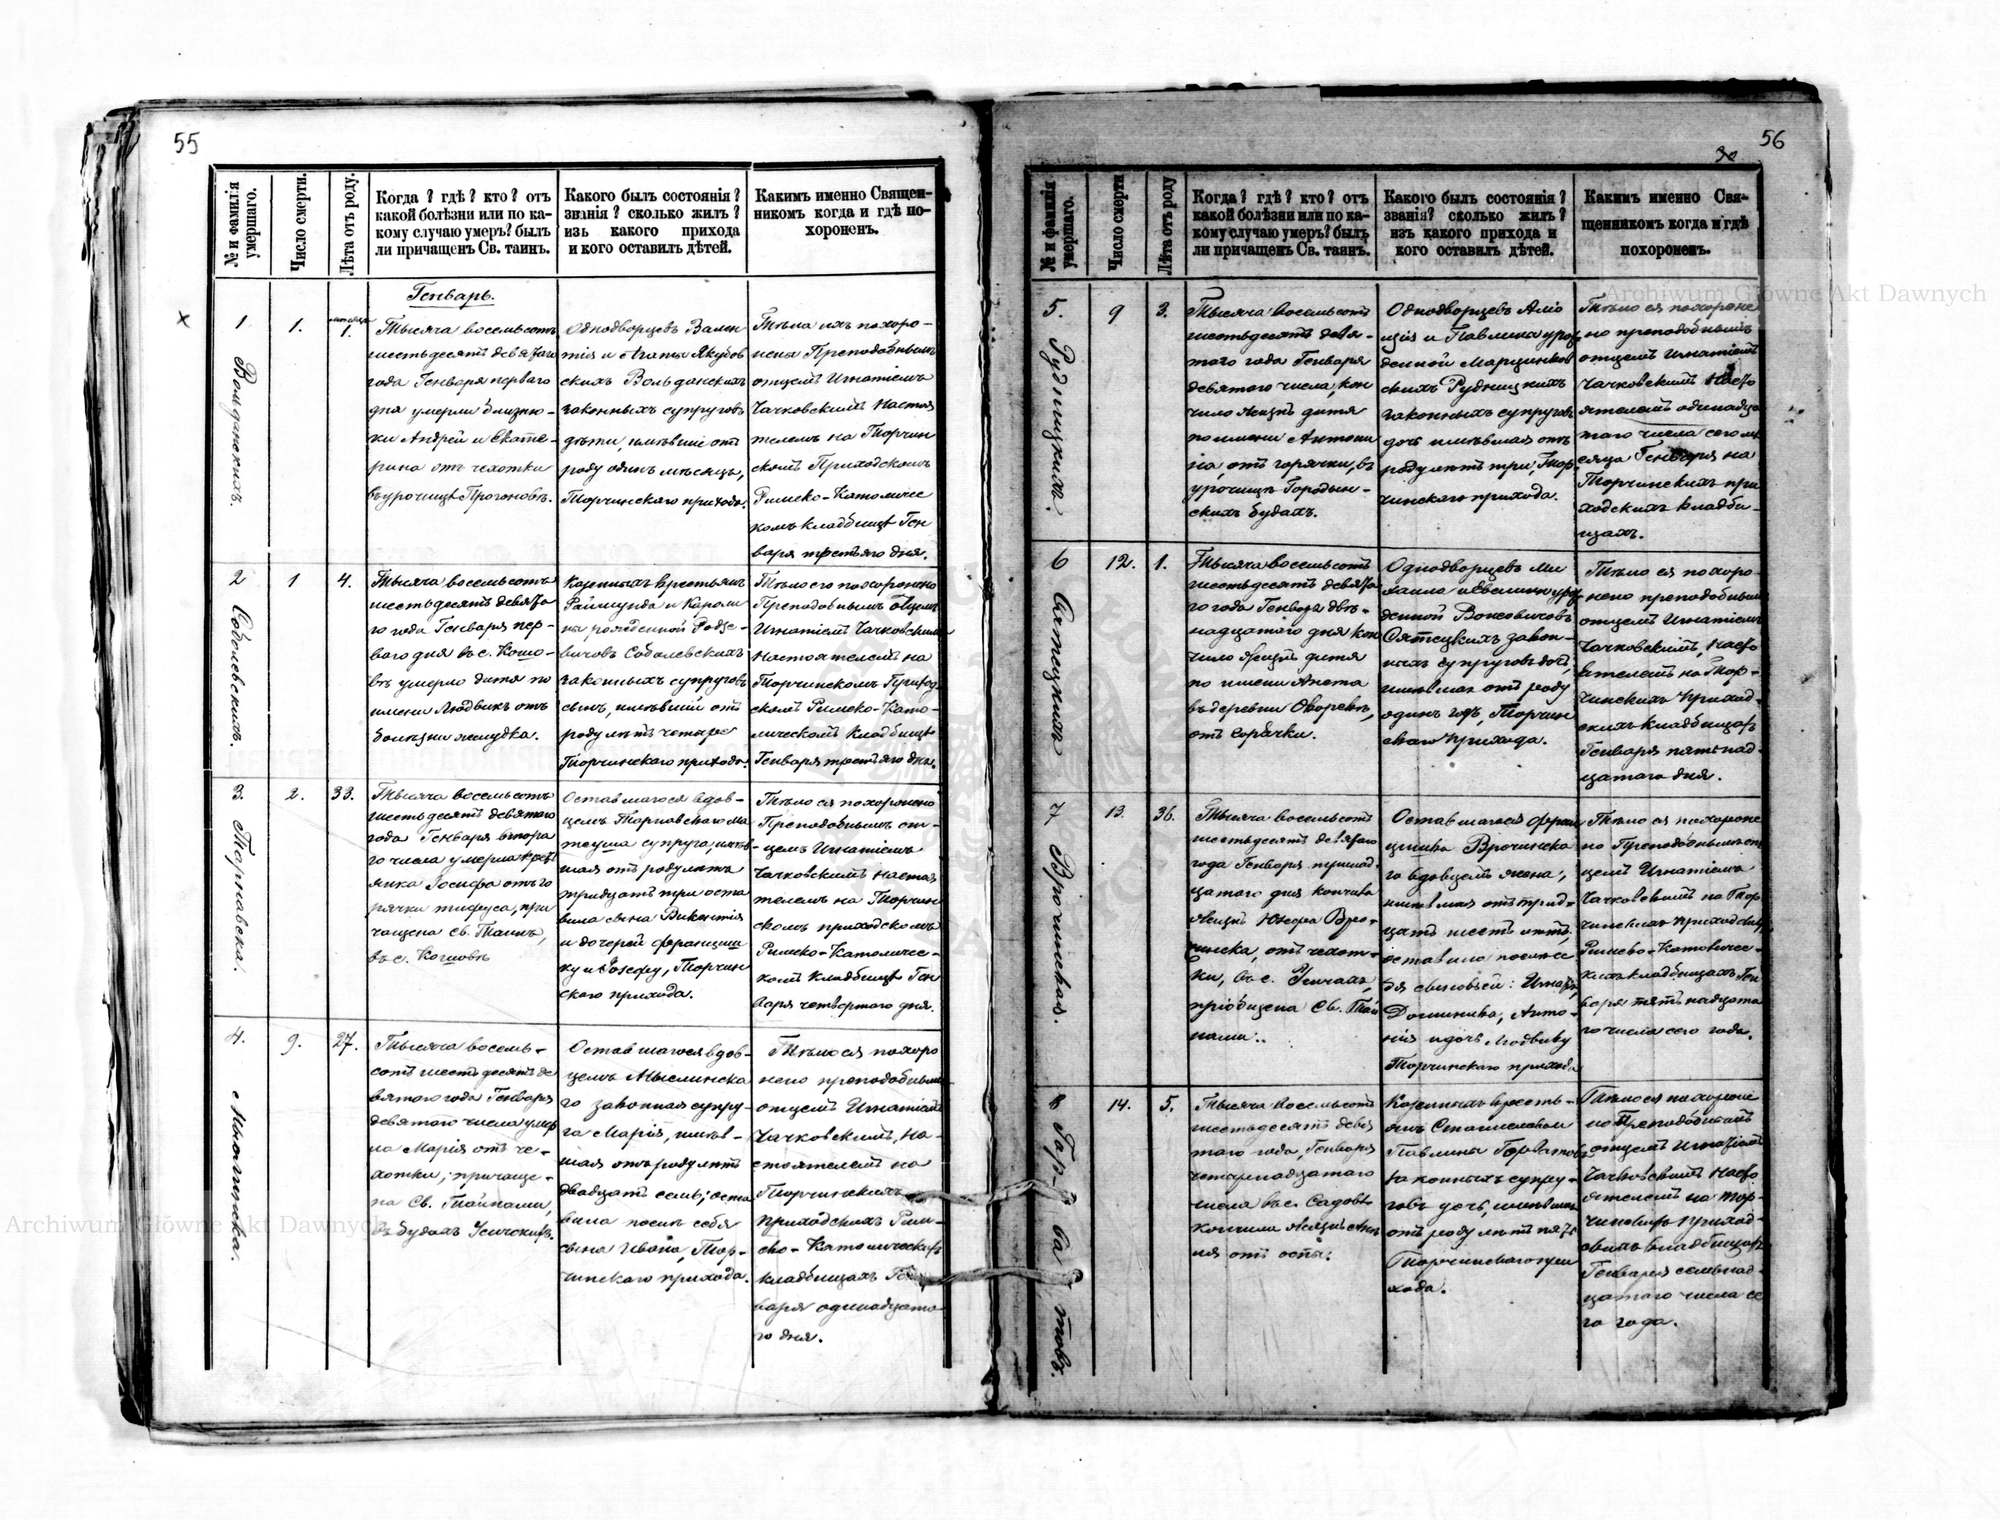 55
№ и фамилія умершаго.
Число смерти.
Лѣта отъ роду.
Когда? гдѣ? кто? отъ
какой болѣзни или по ка-
кому случаю умеръ? былъ
ли причащенъ Св. таинъ.
Какого былъ состоянія?
званія? сколько жилъ?
изъ какого прихода
и кого оставилъ дѣтей.
Каким именно Священ-
никомъ когда и гдѣ по-
хороненъ.
Генварь.
1
1.
1.
Тысяча восемьсотъ
шестьдесятъ девятаго
года Генваря перваго
дня умерли близню-
ки Андрей и Екате-
рина отъ чахотки
въ урочищѣ Прогоновъ.
Однодворцевъ Вален
тія и Агаты Якубов
скихъ Вольданскихъ
законныхъ супруговъ
дѣти, имѣвшіе отъ
роду одинъ мѣсяцъ,
Торчинскаго прихода.
Тѣла ихъ похоро-
нены Преподобнымъ
отцемъ Игнатіемъ
Чачковскимъ Настоя
телемъ на Торчин
скомъ Приходскомъ
Римско-Католичес
комъ кладбищѣ Ген
варя третьяго дня.
2 Соболевскихъ.
1
4.
Тысяча восемьсотъ
шестьдесятъ девята
го года Генваря пер-
ваго дня въ с. Кошо-
въ умерло дитя по
имени Людвикъ отъ
болѣзни желудка.
Казенныхъ крестьянъ
Раймунда и Кароли
ны рожденной Родзе-
вичовъ Соболевскихъ
законныхъ супруговъ
сынъ, имѣвшій отъ
роду лѣтъ четыре
Торчинскаго прихода.
Тѣло его похоронено
Преподобнымъ Отцемъ
Игнатіемъ Чачковскимъ
Настоятелемъ на
Торчинскомъ Приход
скомъ Римско-Като-
лическомъ Кладбищѣ
Генваря третьяго дня.
3. Торнавска.
2.
33.
Тысяча восемьсотъ
шестьдесятъ девятаго
года Генваря втора
го числа умерла крест
янка Іосифа отъ го
рячки тифуса, при
чащена Св. Таинъ,
въ с. Кошовъ
Оставшагося вдов-
цемъ Торнавскаго Ма
теуша супруга, имѣв-
шая отъ роду лѣтъ
тридцать три оста
вила сына Викентія
и дочерей Францишк
ку и Іозефу, Торчин
скаго прихода.
Тѣло ея похоронено
Преподобнымъ от-
цемъ Игнатіемъ
Чачковскимъ Настоя
телемъ на Торчин
скомъ приходскомъ
Римско-Католичес-
комъ Кладбищѣ Ген
варя четвертаго дня.
4. Мыслинска.
9.
27.
Тысяча восемь-
сотъ шестьдесятъ де
вятого года Генваря
девятого числа умер
ла Марія отъ че-
хотки, причаще-
на Св. Тайнами,
въ Будахъ Усичскихъ.
Оставшагося вдов-
цемъ Мыслинска
го законная супру-
га Марія, имѣв-
шая отъ роду лѣтъ
двадцать семь; оста
вила послѣ себя
сына Ивана, Тор-
чинскаго прихода.
Тѣло ея похоро
нено преподобнымъ
отцемъ Игнатіемъ
Чачковскимъ, На-
стоятелемъ на
Торчинскихъ
приходскихъ Рим-
ско-Католическихъ
кладбищахъ Ген
варя одинадцата
го дня.
56
№ и фамилія умершаго.
Число смерти
Лѣта отъ роду
Когда? гдѣ? кто? отъ
какой болѣзни или по ка-
кому случаю умеръ? былъ
ли причащенъ Св. таинъ.
Какого былъ состоянія?
званія? сколько жилъ?
изъ какого прихода и
кого оставилъ дѣтей.
Каким именно Свя-
щенникомъ когда и гдѣ
похороненъ.
5. Рудницкихъ.
9
3.
Тысяча восемьсотъ
шестьдесятъ девя-
таго года Генваря
девятаго числа, кон
чило жизнь дитя
по имени Антони
на, отъ горячки, въ
урочищѣ Городын-
скихъ будахъ.
Однодворцевъ Алои
зія и Павлины урож
денной Марцинков
скихъ Рудницкихъ
законныхъ супруговъ
дочь имѣвшая отъ
роду лѣтъ три, Тор
чинскаго прихода.
Тѣло ея похороне
но преподобнымъ
отцемъ Игнатіемъ
Чачковскимъ Насто
ятелемъ одинадца
таго числа сего мѣ
сяца Генваря на
Торчинскихъ при
ходскихъ кладби-
щахъ.
6
12.
1.
Тысяча восемьсотъ
шестьдесятъ девята
го года Генваря двѣ-
надцатого дня кон
чило жизнь дитя
по имени Анета
въ деревни Окорекъ,
отъ Горячки.
Однодворцевъ Ми
хаила и Евелины урож
денной Воксовичовъ
Сятецкихъ закон-
ныхъ супруговъ дочь,
имѣвшая отъ роду
одинъ годъ, Торчин
скаго прихода.
Тѣло ея похоро-
нено преподобнымъ
отцемъ Игнатіемъ
Чачковскимъ, Насто
ятелемъ на Тор-
чинскихъ Приход
скихъ Кладбищахъ
Генваря пятьнад-
цатаго дня.
7. Врочинская.
13.
36.
Тысяча восемьсотъ
шестьдесятъ девятаго
года Генваря тринад-
цатаго дня кончила
жизнь Юзефа Вро-
чинска, отъ чехот-
ки, въ с. Усичахъ,
пріобщена Св. Тай
нами.
Оставшагося Фран
цишка Врочинска
го вдовцемъ жена,
имѣвшая отъ трид-
цать шесть лѣтъ,
оставила послѣ се
бя сыновей: Игнатія,
Доминика, Анто-
нія и дочь Людвику
Торчинскаго прихода
Тѣло ея похороне
но Преподобнымъ от
цемъ Игнатіемъ
Чачковскимъ на Тор
чинскихъ приходскихъ
Римско-Католичес-
кихъ кладбищахъ Ген
варя пятьнадцата
го числа сего года.
8 Горбатовъ.
14.
5.
Тысяча восемьсотъ
шестьдесятъ девя
таго года, Генваря
четырнадцатаго
числа въ с. Садовъ
кончила жизнь Ан
ля отъ оспы.
Казенныхъ кресть-
янъ Станислава и
Павлины Горбатовъ
законныхъ супру-
говъ дочь, имѣвшая
отъ роду лѣтъ пять
Торчинскаго при
хода.
Тѣло ея похороне
но Преподобнымъ
отцемъ Игнатіемъ
Чачковскимъ Насто
ятелемъ на Тор-
чинскихъ приход
скихъ кладбищахъ
Генваря семьнад-
цатаго числа се
го года.
Archiwum Główne Akt Dawnych
Archiwum Główne Akt Dawnych